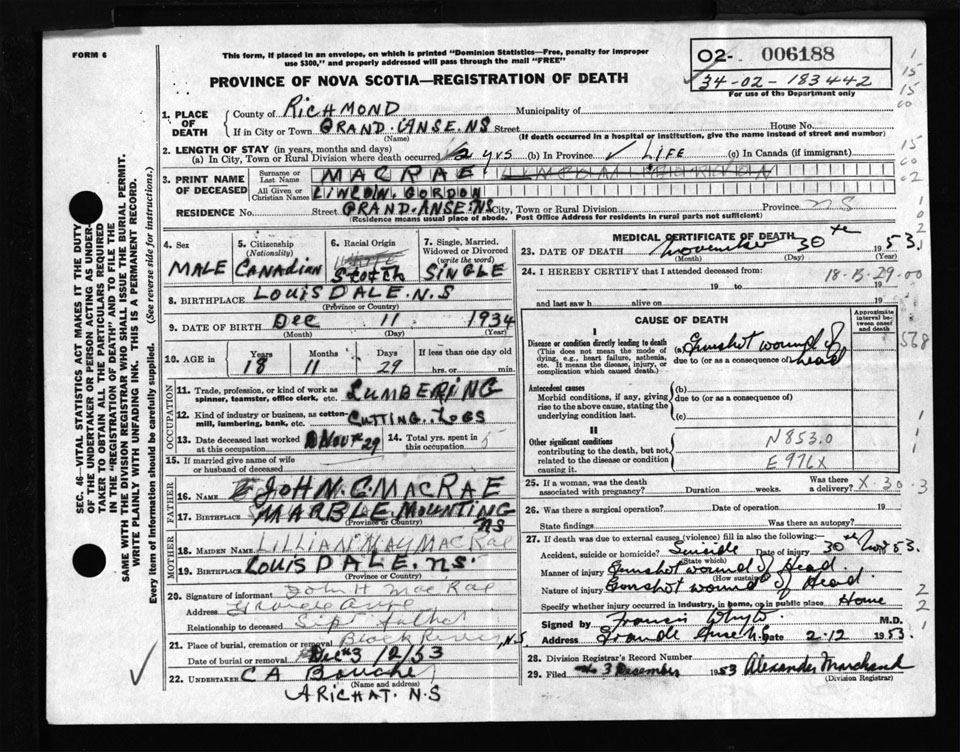 FORM 6
This form, if placed in an envelope, on which is printed "Dominion Statistics—Free, penalty for improper
use $300," and properly addressed will pass through the mail "FREE"
PROVINCE OF NOVA SCOTIA—REGISTRATION OF DEATH
02- 006188
34-02-183442
For use of the Department only
1. PLACE OF DEATH
County of RICHMOND Municipality of
If in City or Town GRAND.ANSE.NS Street House No.
(Name) (If death occurred in a hospital or institution, give the name instead of street and number)
2. LENGTH OF STAY (in years, months and days)
(a) In City, Town or Rural Division where death occurred yrs (b) In Province LIFE (c) In Canada (if immigrant)
3. PRINT NAME OF DECEASED
Surname or Last Name MACRAE
All Given or Christian Names LINCOLN. GORDON
RESIDENCE No. Street GRAND.ANSE.NS City, Town or Rural Division Province NS
(Residence means usual place of abode. Post Office Address for residents in rural parts not sufficient)
4. Sex
MALE
5. Citizenship
(Nationality)
Canadian
6. Racial Origin
Scotch
7. Single, Married,
Widowed or Divorced
(write the word)
SINGLE
8. BIRTHPLACE LOUISDALE.N.S
(Province or Country)
9. DATE OF BIRTH Dec 11 1934
(Month) (Day) (Year)
10. AGE in
Years Months Days If less than one day old
18 11 29 hrs. or min.
OCCUPATION
11. Trade, profession, or kind of work as
spinner, teamster, office clerk, etc. LUMBERING
12. Kind of industry or business, as cotton-
mill, lumbering, bank, etc. CUTTING. LOGS
13. Date deceased last worked
at this occupation Nov 29
14. Total yrs. spent in
this occupation 5
15. If married give name of wife
or husband of deceased
FATHER
16. NAME JOHN.C MACRAE
17. BIRTHPLACE MARBLE.MOUNTING
(Province or Country) NS
MOTHER
18. MAIDEN NAME LILLIAN MAY MACRAE
19. BIRTHPLACE LOUISDALE. NS.
(Province or Country)
20. Signature of informant John H MacRae
Address Grande Anse
Relationship to deceased Step father
21. Place of burial, cremation or removal Black River, N.S
Date of burial or removal Dec 3/12/53
22. UNDERTAKER C A Bouche
(Name and address)
ARICHAT. N.S
MEDICAL CERTIFICATE OF DEATH
23. DATE OF DEATH November 30th 1953.
(Month) (Day) (Year)
24. I HEREBY CERTIFY that I attended deceased from:
18-B-29-00
19 to 19
and last saw h alive on 19
CAUSE OF DEATH
Approximate
interval be-
tween onset
and death
I
Disease or condition directly leading to death
(This does not mean the mode of
dying, e.g., heart failure, asthenia,
etc. It means the disease, injury, or
complication which caused death.)
(a) Gunshot wound of
due to (or as a consequence of) head
568
Antecedent causes
Morbid conditions, if any, giving
rise to the above cause, stating the
underlying condition last.
(b)
due to (or as a consequence of)
(c)
II
Other significant conditions
contributing to the death, but not
related to the disease or condition
causing it.
N853.0
E976X
25. If a woman, was the death
associated with pregnancy? Duration weeks. Was there
a delivery? X-30-3
26. Was there a surgical operation? Date of operation 19
State findings Was there an autopsy?
27. If death was due to external causes (violence) fill in also the following:—
Accident, suicide or homicide? Suicide Date of injury 30th Nov 1953.
(State which)
Manner of injury Gunshot wound of Head
(How sustained)
Nature of injury Gunshot wound of Head.
Specify whether injury occurred in industry, in home, or in public place Home
Signed by Francis Whyte M.D.
Address Grande Anse N.S Date 2-12 1953.
28. Division Registrar's Record Number
29. Filed 3 December 1953 Alexander Marchand
(Division Registrar)
SEC. 46—VITAL STATISTICS ACT MAKES IT THE DUTY
OF THE UNDERTAKER OR PERSON ACTING AS UNDER-
TAKER TO OBTAIN ALL THE PARTICULARS REQUIRED
IN THE "REGISTRATION OF DEATH" AND TO FILE THE
SAME WITH THE DIVISION REGISTRAR WHO SHALL ISSUE THE BURIAL PERMIT.
WRITE PLAINLY WITH UNFADING INK. THIS IS A PERMANENT RECORD.
Every item of information should be carefully supplied. (See reverse side for instructions.)